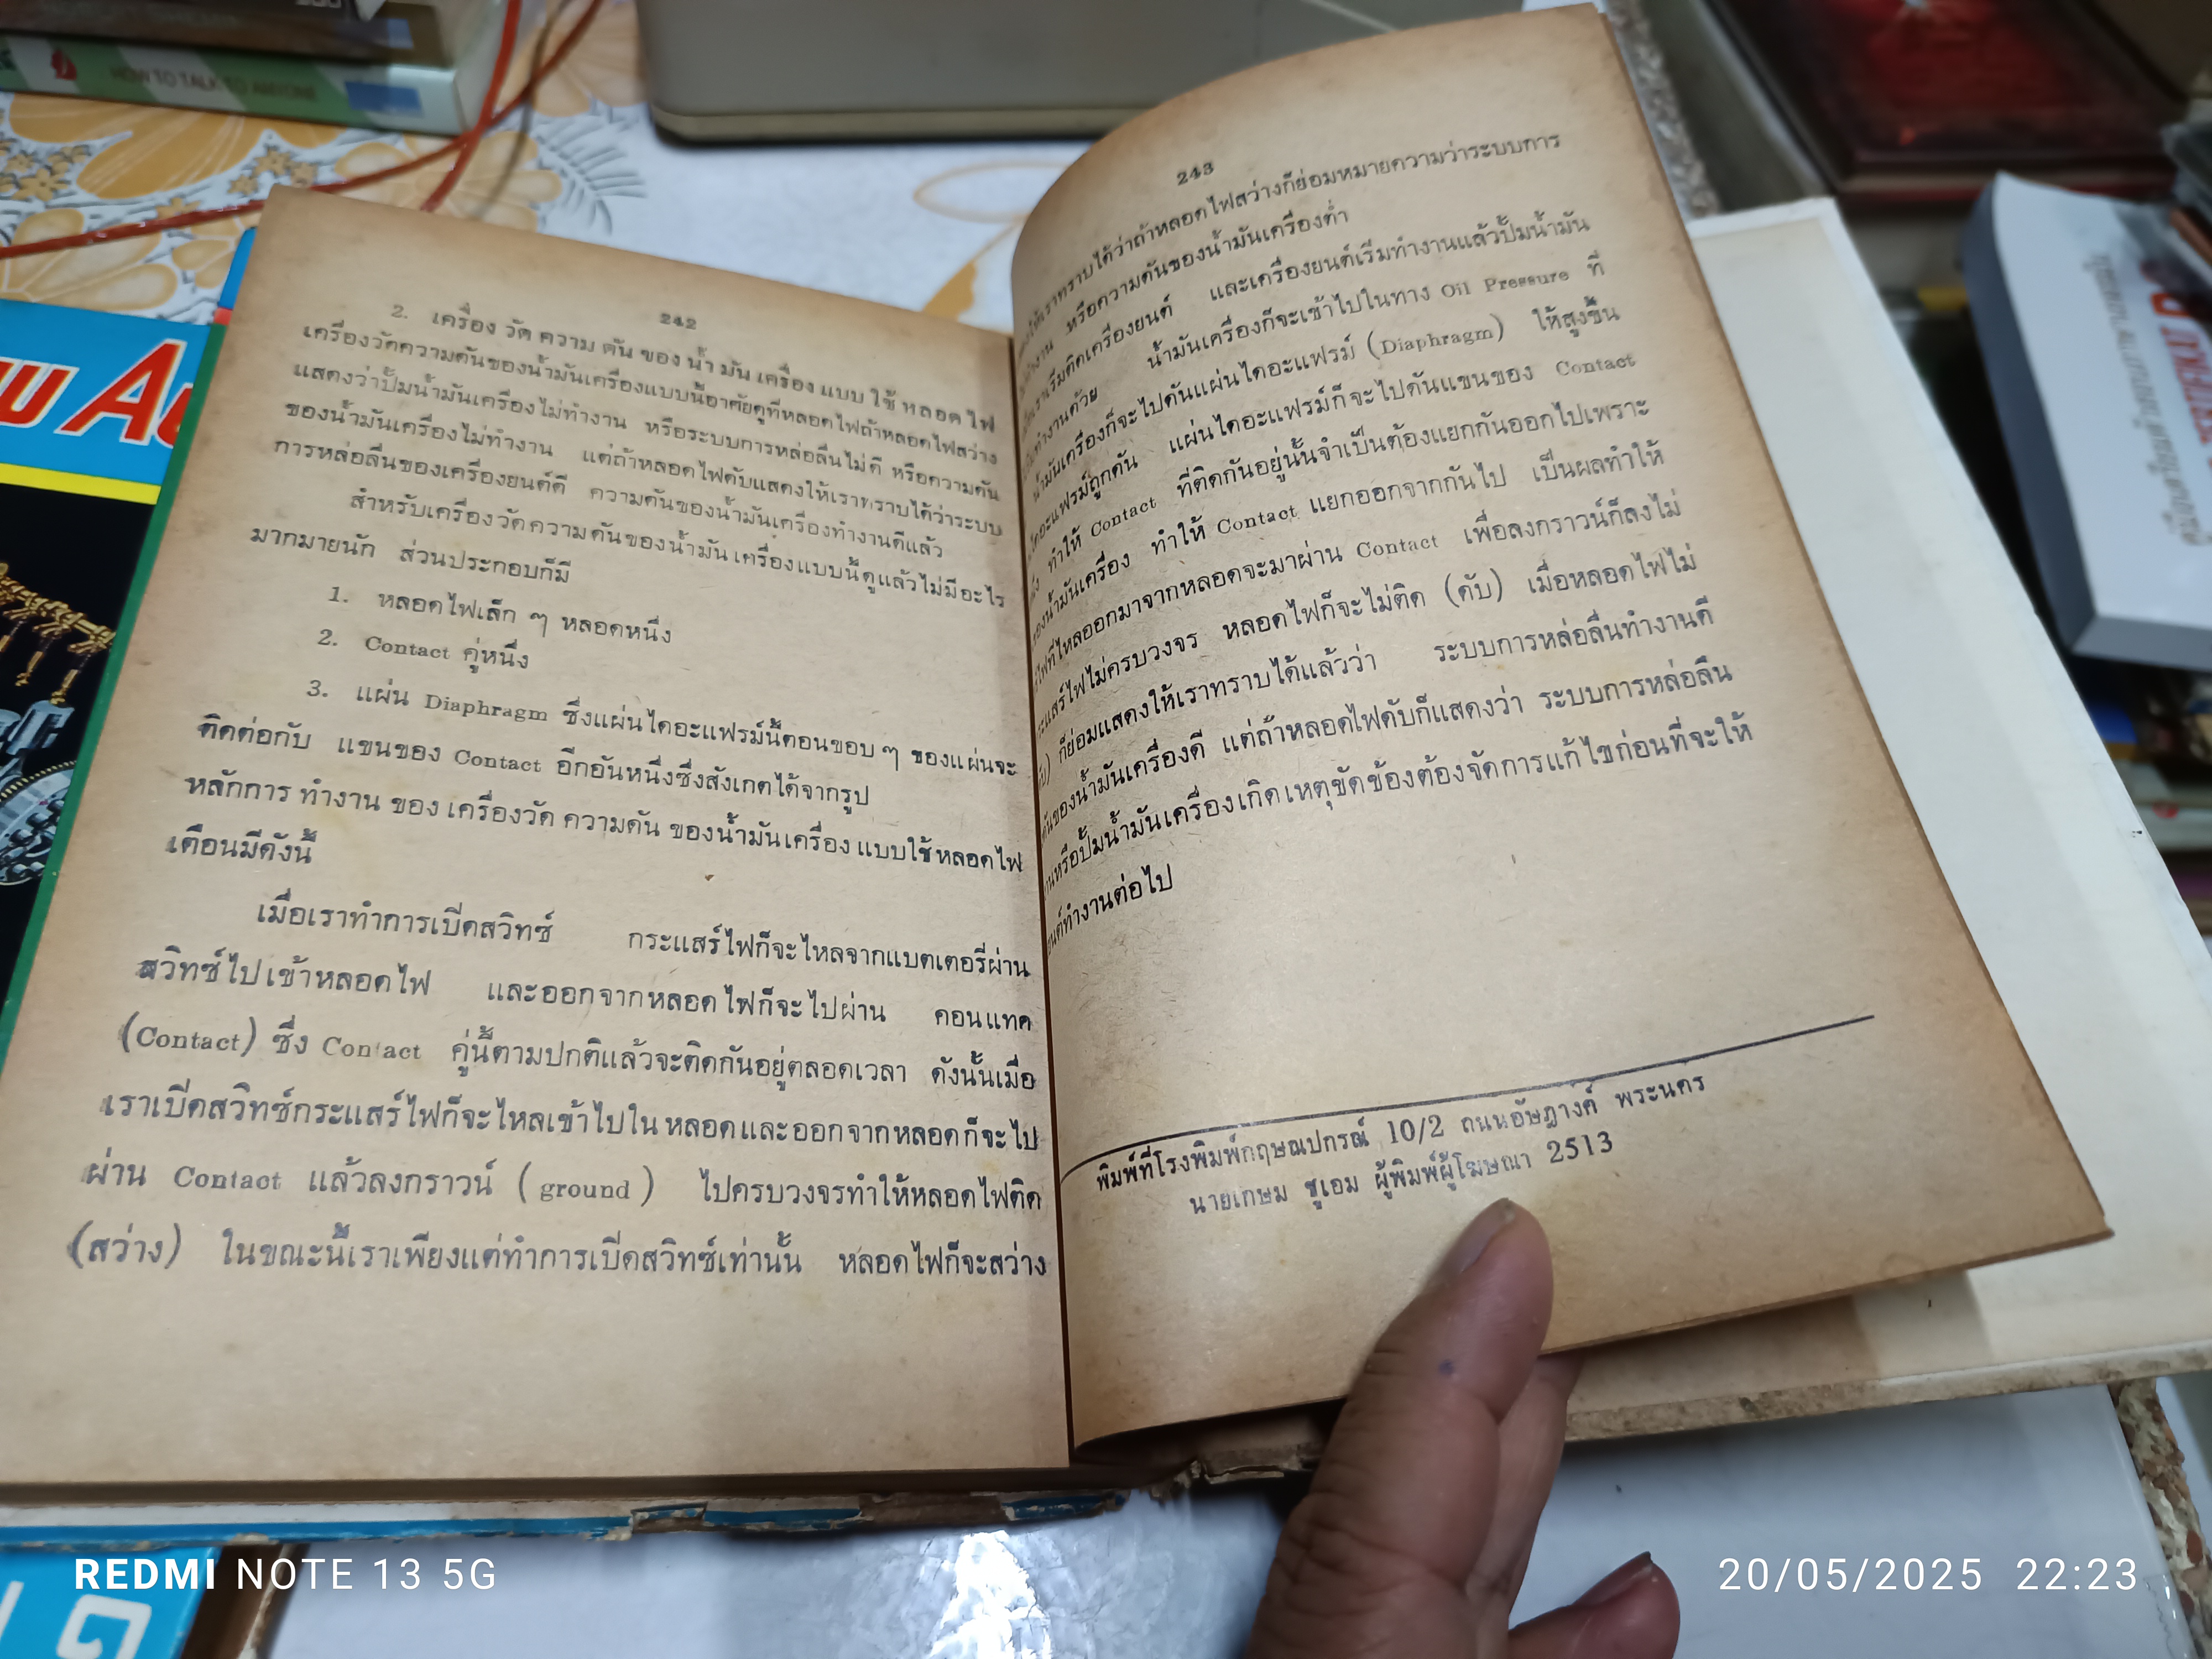 HOW TO TALK TO ANYONE
242
2. เครื่อง วัด ความ ดัน ของ น้ำ มัน เครื่อง แบบ ใช้ หลอด ไฟ
เครื่องวัดความดันของน้ำมันเครื่องแบบนี้อาศัยดูที่หลอดไฟถ้าหลอดไฟสว่าง
แสดงว่าปั้มน้ำมันเครื่องไม่ทำงาน หรือระบบการหล่อลื่นไม่ดี หรือความดัน
ของน้ำมันเครื่องไม่ทำงาน แต่ถ้าหลอดไฟดับแสดงให้เราทราบได้ว่าระบบ
การหล่อลื่นของเครื่องยนต์ดี ความดันของน้ำมันเครื่องทำงานดีแล้ว
สำหรับเครื่องวัดความดันของน้ำมันเครื่องแบบนี้ดูแล้วไม่มีอะไร
มากมายนัก ส่วนประกอบก็มี
1. หลอดไฟเล็ก ๆ หลอดหนึ่ง
2. Contact คู่หนึ่ง
3. แผ่น Diaphragm ซึ่งแผ่นไดอะแฟรม์นี้ตอนขอบ ๆ ของแผ่นจะ
ติดต่อกับ แขนของ Contact อีกอันหนึ่งซึ่งสังเกตได้จากรูป
หลักการ ทำงาน ของ เครื่องวัด ความดัน ของน้ำมันเครื่อง แบบใช้หลอดไฟ
เตือนมีดังนี้
เมื่อเราทำการเปิดสวิทซ์ กระแสร์ไฟก็จะไหลจากแบตเตอรี่ผ่าน
สวิทซ์ไปเข้าหลอดไฟ และออกจากหลอดไฟก็จะไปผ่าน คอนแทค
(Contact) ซึ่ง Contact คู่นี้ตามปกติแล้วจะติดกันอยู่ตลอดเวลา ดังนั้นเมื่อ
เราเปิดสวิทซ์กระแสร์ไฟก็จะไหลเข้าไปในหลอดและออกจากหลอดก็จะไป
ผ่าน Contact แล้วลงกราวน์ (ground) ไปครบวงจรทำให้หลอดไฟติด
(สว่าง) ในขณะนี้เราเพียงแต่ทำการเปิดสวิทซ์เท่านั้น หลอดไฟก็จะสว่าง
243
ให้เราทราบได้ว่าถ้าหลอดไฟสว่างก็ย่อมหมายความว่าระบบการ
หรือความดันของน้ำมันเครื่องต่ำ
เราเริ่มติดเครื่องยนต์ และเครื่องยนต์เริ่มทำงานแล้วปั้มน้ำมัน
ทำงานด้วย น้ำมันเครื่องก็จะเข้าไปในทาง Oil Pressure ที่
น้ำมันเครื่องก็จะไปดันแผ่นไดอะแฟรม์ (Diaphragm) ให้สูงขึ้น
ไดอะแฟรม์ถูกดัน แผ่นไดอะแฟรม์ก็จะไปดันแขนของ Contact
ทำให้ Contact ที่ติดกันอยู่นั้นจำเป็นต้องแยกกันออกไปเพราะ
ของน้ำมันเครื่อง ทำให้ Contact แยกออกจากกันไป เป็นผลทำให้
ไฟที่ไหลออกมาจากหลอดจะมาผ่าน Contact เพื่อลงกราวน์ก็ลงไม่
กระแสร์ไฟไม่ครบวงจร หลอดไฟก็จะไม่ติด (ดับ) เมื่อหลอดไฟไม่
ก็ย่อมแสดงให้เราทราบได้แล้วว่า ระบบการหล่อลื่นทำงานดี
ดันของน้ำมันเครื่องดี แต่ถ้าหลอดไฟดับก็แสดงว่า ระบบการหล่อลื่น
หรือปั้มน้ำมันเครื่องเกิดเหตุขัดข้องต้องจัดการแก้ไขก่อนที่จะให้
ยนต์ทำงานต่อไป
พิมพ์ที่โรงพิมพ์กฤษณปกรณ์ 10/2 ถนนอัษฎางค์ พระนคร
นายเกษม ชูเอม ผู้พิมพ์ผู้โฆษณา 2513
REDMI NOTE 13 5G
20/05/2025 22:23